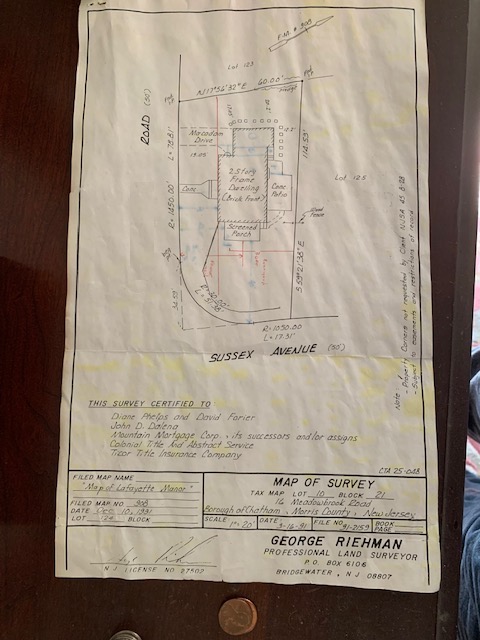 F.M. # 308
Lot 123
N17°56'32"E 60.00'
ROAD (50')
L=78.81'
R=1450.00'
Macadam
Drive
19.05
114.53'
Lot 125
2 Story
Frame
Dwelling
(Brick Front)
Conc
Conc
Patio
Wood
Fence
Screened
Porch
S 59°21'38" E
R=1050.00
L=17.31'
SUSSEX AVENUE (50')
Note
- Property Corners not requested by Client NJSA 45:8-28
- Subject to easements and restrictions of record
THIS SURVEY CERTIFIED TO
Diane Phelps and David Forier
John D. Dalena
Mountain Mortgage Corp., its successors and/or assigns
Colonial Title And Abstract Service
Ticor Title Insurance Company
CTA 25-048
FILED MAP NAME
"Map of Lafayette Manor"
FILED MAP NO 308
DATE Dec. 10, 1931
LOT 124 BLOCK
MAP OF SURVEY
TAX MAP LOT 10 BLOCK 21
16 Meadowbrook Road
Borough of Chatham, Morris County, New Jersey
SCALE 1"=20' DATE 3-16-91 FILE NO 91-2159 BOOK
PAGE
GEORGE RIEHMAN
PROFESSIONAL LAND SURVEYOR
P.O. BOX 6106
BRIDGEWATER, N J 08807
N.J. LICENSE NO 27502